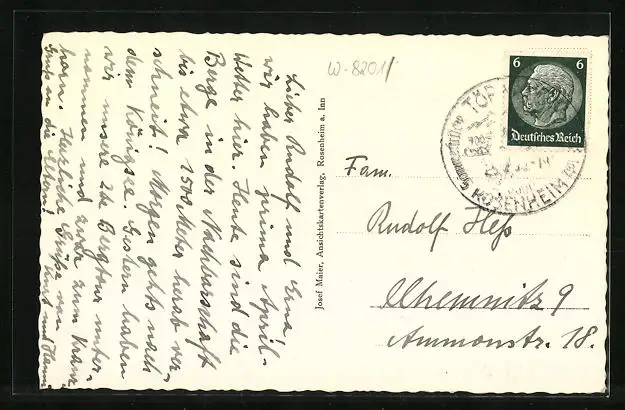 Lieber Rudolf und Erna!
wir haben prima April-
Wetter hier. Heute sind die
Berge in der Nachbarschaft
bis etwa 1500 Meter herab ver-
schneit! Morgen gehts nach
dem Königssee. Gestern haben
wir unsere 2te Bergtour unter-
nommen und zwar zum Kranz-
horn. Herzliche Grüße von
Kurt und Hanni
Gruß an die Eltern!
Josef Maier, Ansichtskartenverlag, Rosenheim a. Inn
W-8201/
6 6
Deutsches Reich
ROSENHEIM
Fam.
Rudolf Heß
Chemnitz 9
Ammonstr. 18.